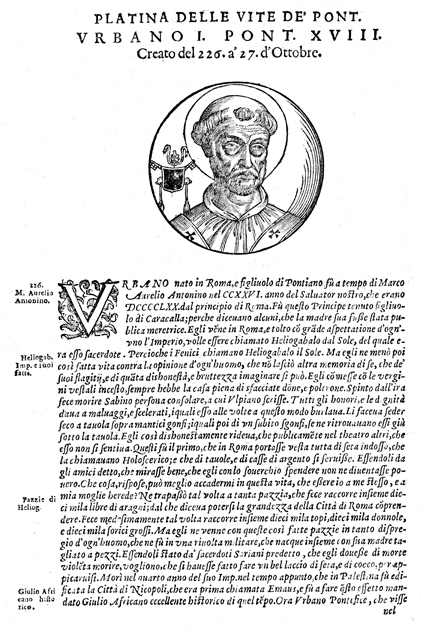 PLATINA DELLE VITE DE' PONT.
VRBANO I. PONT. XVIII.
Creato del 226. a' 27. d'Ottobre.
226.
M. Aurelio
Antonino.
VRBANO nato in Roma, e figliuolo di Pontiano fù a tempo di Marco
Aurelio Antonino nel CCXXVI. anno del Saluator nostro, che erano
DCCCCLXX. dal principio di Roma. Fù questo Principe tenuto figliuo
lo di Caracalla; perche diceuano alcuni, che la madre sua fusse stata pu
blica meretrice. Egli vẽne in Roma, e tolto cõ grãde aspettatione d'ogn'
vno l'Imperio, volle essere chiamato Heliogabalo dal Sole, del quale e-
Heliogab.
Imp. e suoi
fatti.
ra esso sacerdote. Percioche i Fenici chiamano Heliogabalo il Sole. Ma egli ne menò poi
così fatta vita contra l'opinione d'ogn'huomo, che nõ lasciò altra memoria di se, che de'
suoi flagitij, e di quãta dishonestà, e bruttezza imaginare si può. Egli cõmesse cõ le vergi
ni vestali incesto, sempre hebbe la casa piena di sfacciate dõne, e poi
fece morire Sabino persona consolare, a cui Vlpiano scrisse. Tutti gli honori, e le dignità
daua a maluaggi, e scelerati, i quali esso alle volte a questo modo burlaua. Li faceua seder
seco a tauola sopra mantici gonfi; i quali poi di vn subito sgonfi, se ne ritrouauano essi già
sotto la tauola. Egli così dishonestamente rideua, che publicamẽte nel theatro altri, che
esso non si sentiua. Questi fù il primo, che in Roma portasse vesta tutta di seta indosso, che
la chiamauano Holoserico; e che di tauole, e di casse di argento si seruisse. Essendoli da
gli amici detto, che mirasse bene, che egli con lo souerchio spendere non ne diuentasse po-
uero. Che cosa, rispose, può meglio accadermi in questa vita, che essere io a me stesso, e a
Pazzie di
Heliog.
mia moglie herede? Ne trapaßò tal volta a tanta pazzia, che fece raccorre insieme die-
ci mila libre di aragni; dal che diceua potersi la grandezza della Città di Roma cõpren-
dere. Fece medesimamente tal volta raccorre insieme dieci mila topi, dieci mila donnole,
e dieci mila sorici grossi. Ma egli ne venne con queste così fatte pazzie in tanto dispre-
gio d'ogn'huomo, che ne fù in vna riuolta militare, che nacque insieme con sua madre ta-
gliato a pezzi. Essendoli stato da' sacerdoti Soriani predetto, che egli doueße di morte
violẽta morire, vogliono, che si hauesse fatto fare vn bel laccio di seta, e di cocco, per ap-
piccaruisi. Morì nel quarto anno del suo Imp. nel tempo appunto, che in Palestina fù edi-
Giulio Afri
cano histo
rico.
ficata la Città di Nicopoli, che era prima chiamata Emaus; e fù a fare q̃sto effetto man-
dato Giulio Africano eccellente historico di quel tẽpo. Ora Vrbano Pontefice, che visse
nel